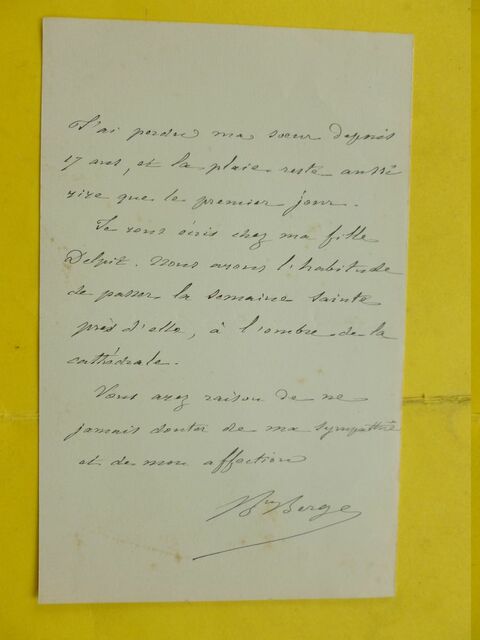 J'ai perdu ma sœur depuis
17 ans, et la plaie reste aussi
vive que le premier jour.
Je vous écris chez ma fille
Delpit. Nous avons l'habitude
de passer la semaine sainte
près d'elle, à l'ombre de la
cathédrale.
Vous avez raison de ne
jamais douter de ma sympathie
et de mon affection
Berge